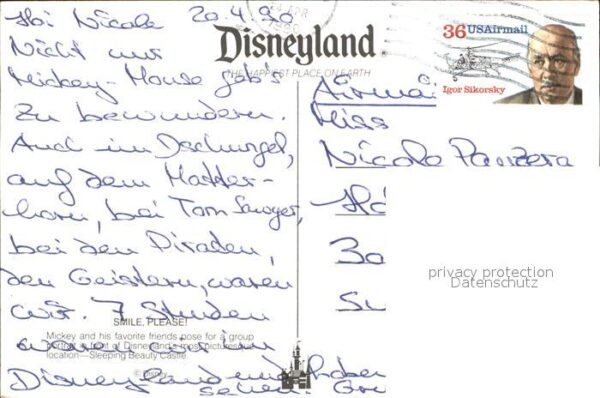 Hoi Nicole 20.4.90
Nicht nur
Mickey-Mouse gab's
zu bewundern.
Auch im Dschungel,
auf dem Matter-
horn, bei Tom Sawyer,
bei den Piraden,
den Geistern, waren
wir. 7 Stunden
waren wir in
Disneyland und haben
sehen. Gru
Disneyland
THE HAPPIEST PLACE ON EARTH
36 USAirmail
Igor Sikorsky
Airmail
Miss
Nicole Panzera
privacy protection
Datenschutz
SMILE, PLEASE!
Mickey and his favorite friends pose for a group
portrait in front of Disneyland's most picturesque
location—Sleeping Beauty Castle
© Disney